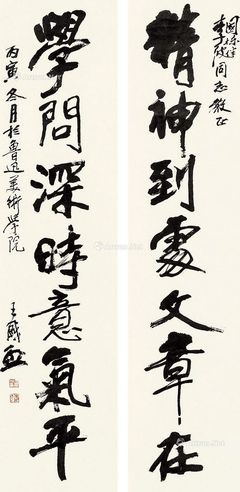 同志教正
精神到處文章老
學問深時意氣平
丙寅冬月於魯迅美術學院
王盛烈